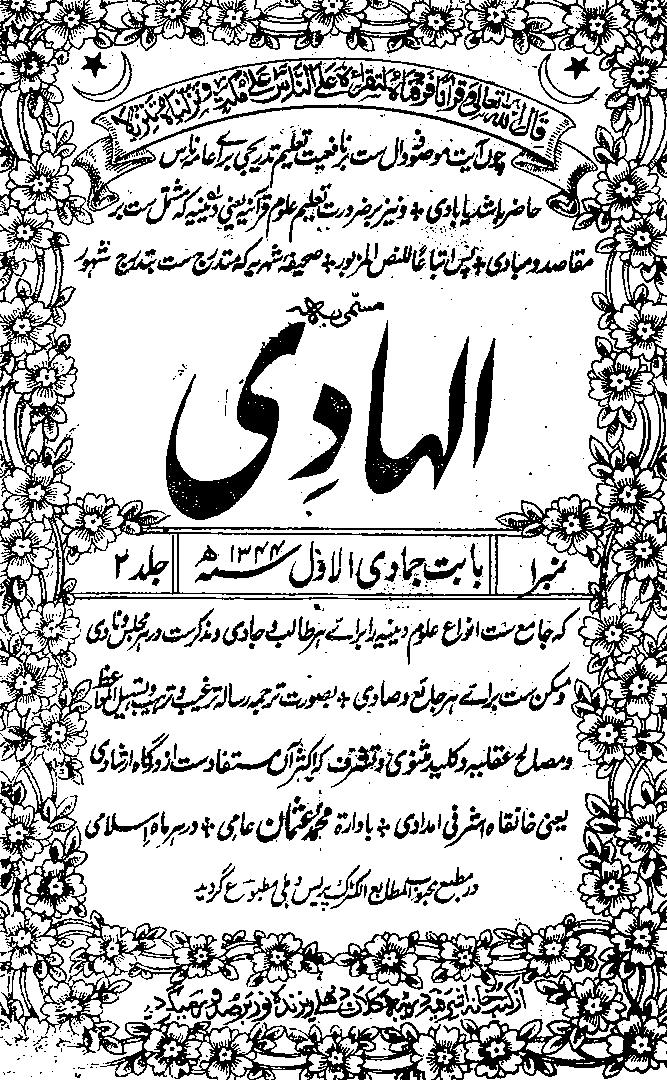 قال اللہ تعالی وقرآنا فرقناہ لتقرأہ علی الناس علی مکث ونزلناہ تنزیلا
چوں آیت موصوفہ دال ست بر نافعیت تعلیم تدریجی برائے عامۂ ناس
حاضر باشد یا بادی ٭ و نیز بر ضرورت تعلیم علوم قرآنیہ یعنی دینیہ کہ مشتمل ست بر
مقاصد و مبادی ٭ پس اتباعا للنص المزبور ٭ صحیفہ شہریہ کہ متدرج ست بتدرج شہور
مسمی بہ
الہادی
نمبر ۱
بابت جمادی الاول سنہ ۱۳۴۴ ھ
جلد ۲
کہ جامع ست انواع علوم دینیہ را برائے ہر طالب و جادی و مذکر ست در ہر مجلس و نادی
و مسکن ست برائے ہر جائع و صادی ٭ بصورت ترجمہ رسالہ ترغیب و ترہیب و تسہیل المواعظ
و مصالح عقلیہ و کلید مثنوی و تشرف کہ اکثر آں مستفاد ست از درگاہ ارشادی
یعنی خانقاہ اشرفی امدادی ٭ بادارۃ محمد عثمان عامی ٭ در ہر ماہ اسلامی
در مطبع محبوب المطابع الکٹرک پریس دہلی مطبوع گردید
از کتب خانہ اشرفیہ دریبہ کلاں دہلی